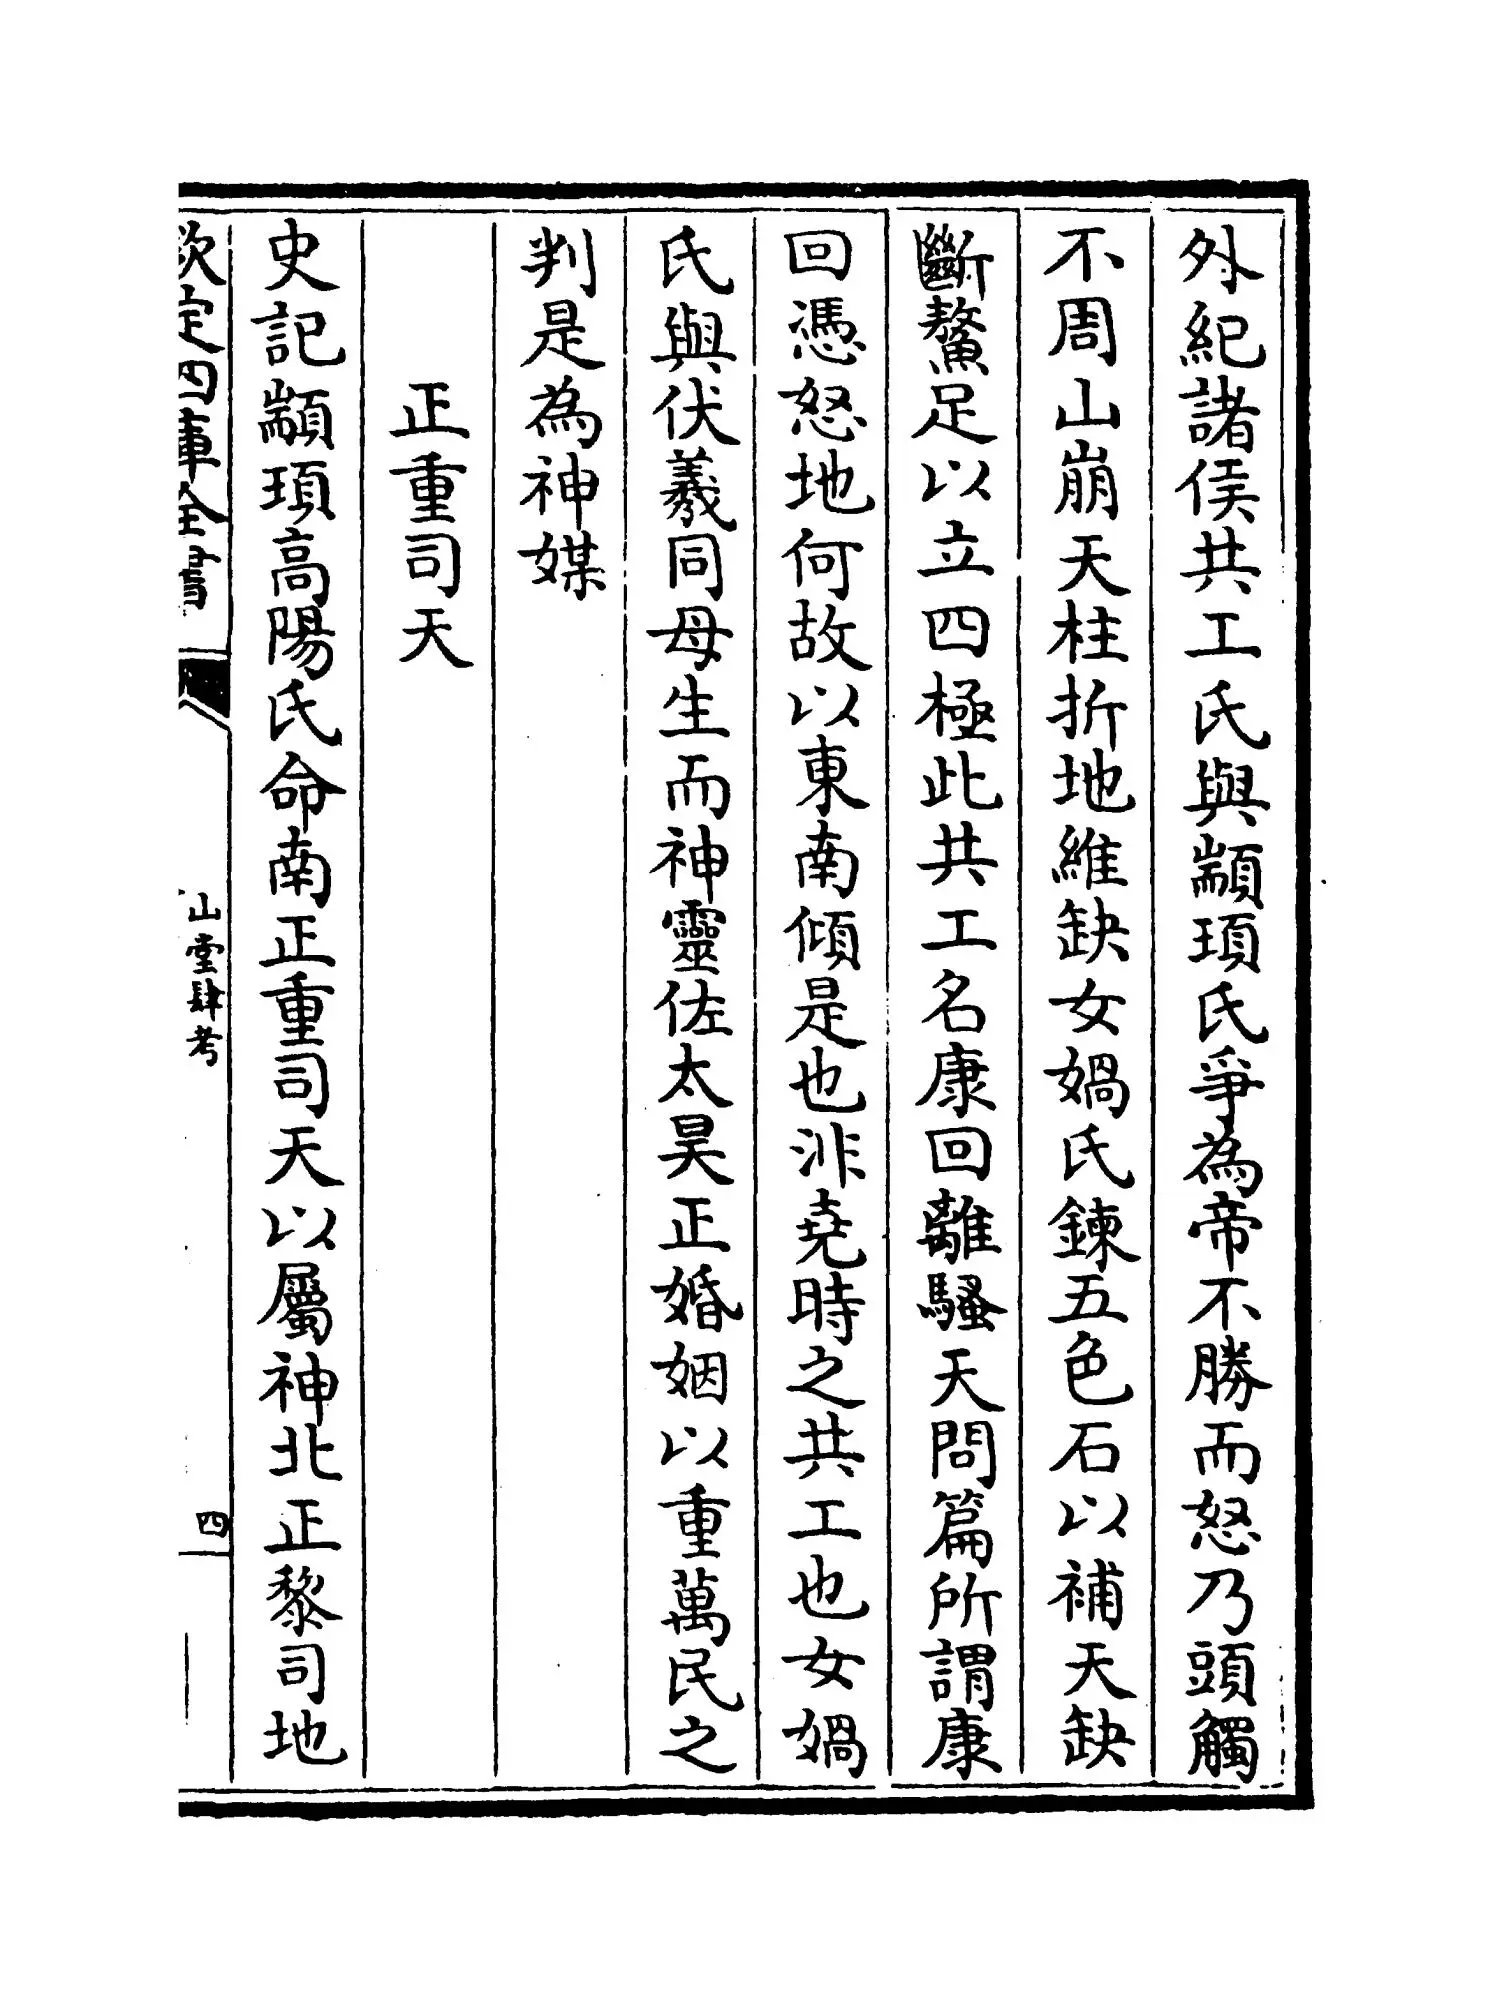 外紀諸侯共工氏與顓頊氏爭為帝不勝而怒乃頭觸
不周山崩天柱折地維缺女媧氏鍊五色石以補天缺
斷鰲足以立四極此共工名康回離騷天問篇所謂康
回憑怒地何故以東南傾是也非堯時之共工也女媧
氏與伏羲同母生而神靈佐太昊正婚姻以重萬民之
判是為神媒
正重司天
史記顓頊高陽氏命南正重司天以屬神北正黎司地
欽定四庫全書
山堂肆考
四